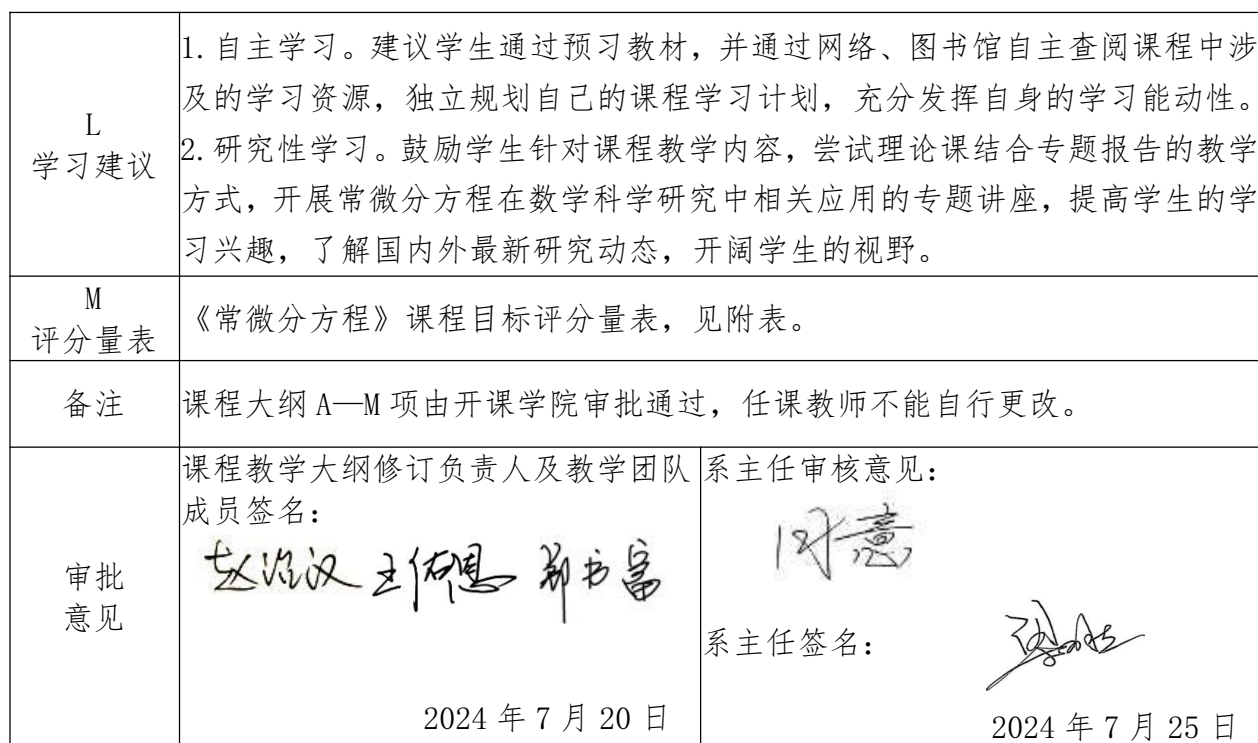 L
学习建议
1.自主学习。建议学生通过预习教材，并通过网络、图书馆自主查阅课程中涉
及的学习资源，独立规划自己的课程学习计划，充分发挥自身的学习能动性。
2.研究性学习。鼓励学生针对课程教学内容，尝试理论课结合专题报告的教学
方式，开展常微分方程在数学科学研究中相关应用的专题讲座，提高学生的学
习兴趣，了解国内外最新研究动态，开阔学生的视野。
M
评分量表
《常微分方程》课程目标评分量表，见附表。
备注
课程大纲 A—M 项由开课学院审批通过，任课教师不能自行更改。
审批
意见
课程教学大纲修订负责人及教学团队
成员签名：
郑书富
2024 年 7 月 20 日
系主任审核意见：
同意
系主任签名：
2024 年 7 月 25 日